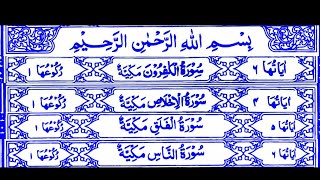 بِسْمِ اللهِ الرَّحْمٰنِ الرَّحِيْمِ
اٰيَاتُهَا ٦ سُوْرَةُ الْكٰفِرُوْنَ مَكِّيَّةٌ رُكُوْعُهَا ١
اٰيَاتُهَا ٤ سُوْرَةُ الْاِخْلَاصِ مَكِّيَّةٌ رُكُوْعُهَا ١
اٰيَاتُهَا ٥ سُوْرَةُ الْفَلَقِ مَكِّيَّةٌ رُكُوْعُهَا ١
اٰيَاتُهَا ٦ سُوْرَةُ النَّاسِ مَكِّيَّةٌ رُكُوْعُهَا ١